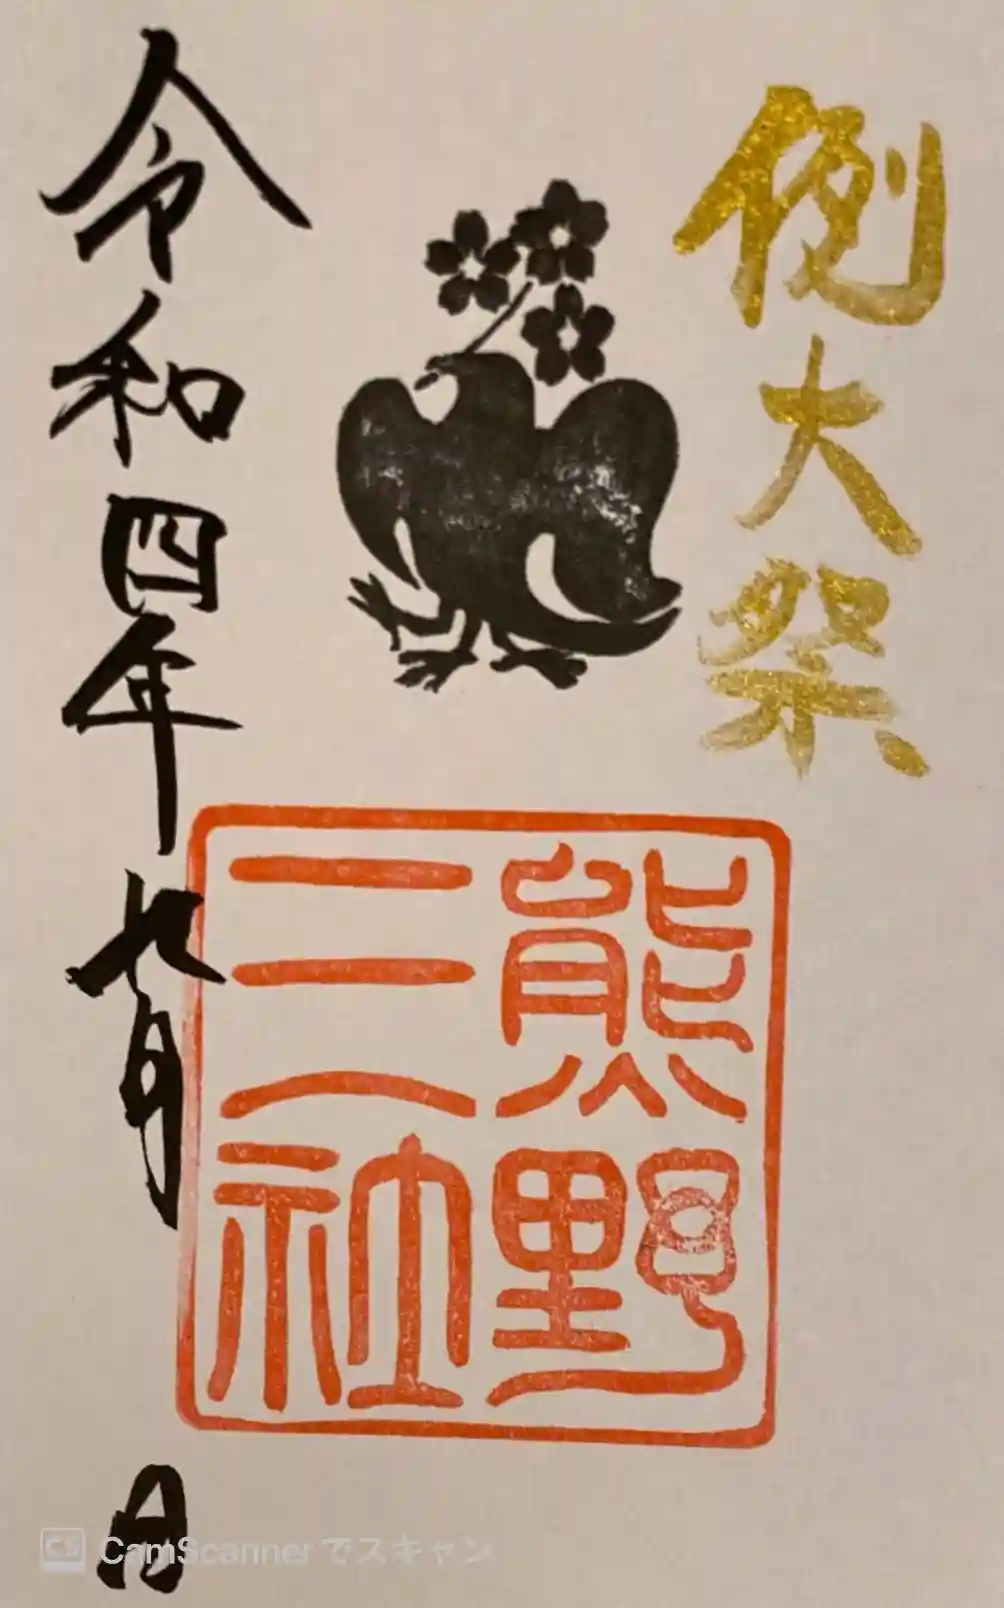 例大祭
熊野
三社
令和四年九月 日
CS CamScanner でスキャン